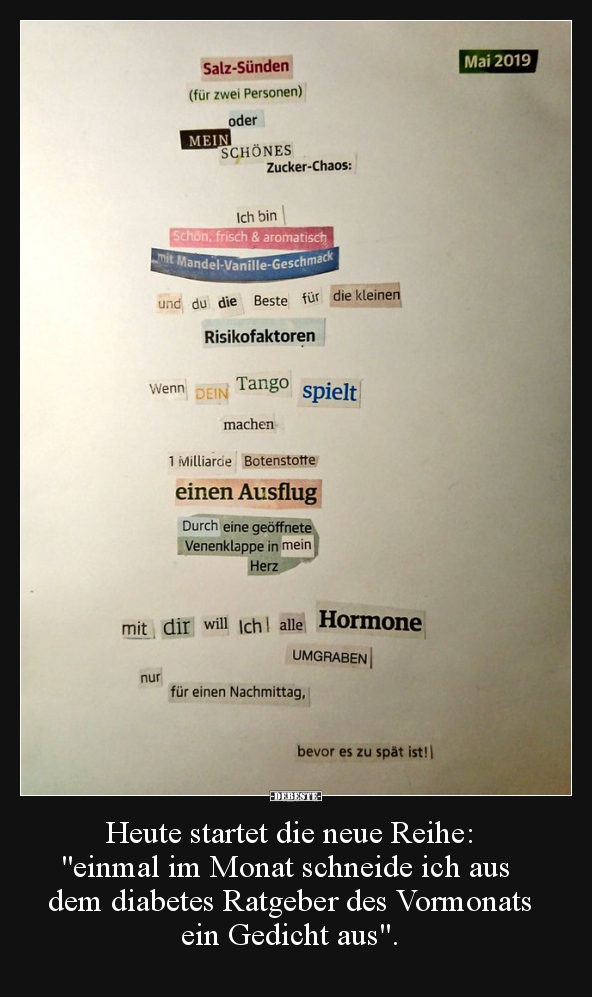 Mai 2019
Salz-Sünden
(für zwei Personen)
oder
MEIN
SCHÖNES
Zucker-Chaos:
Ich bin
Schön, frisch & aromatisch
mit Mandel-Vanille-Geschmack
und du die Beste für die kleinen
Risikofaktoren
Wenn DEIN Tango spielt
machen
1 Milliarde Botenstoffe
einen Ausflug
Durch eine geöffnete
Venenklappe in mein
Herz
mit dir will Ich alle Hormone
UMGRABEN
nur
für einen Nachmittag,
bevor es zu spät ist!
-DEBESTE-
Heute startet die neue Reihe:
"einmal im Monat schneide ich aus
dem diabetes Ratgeber des Vormonats
ein Gedicht aus".